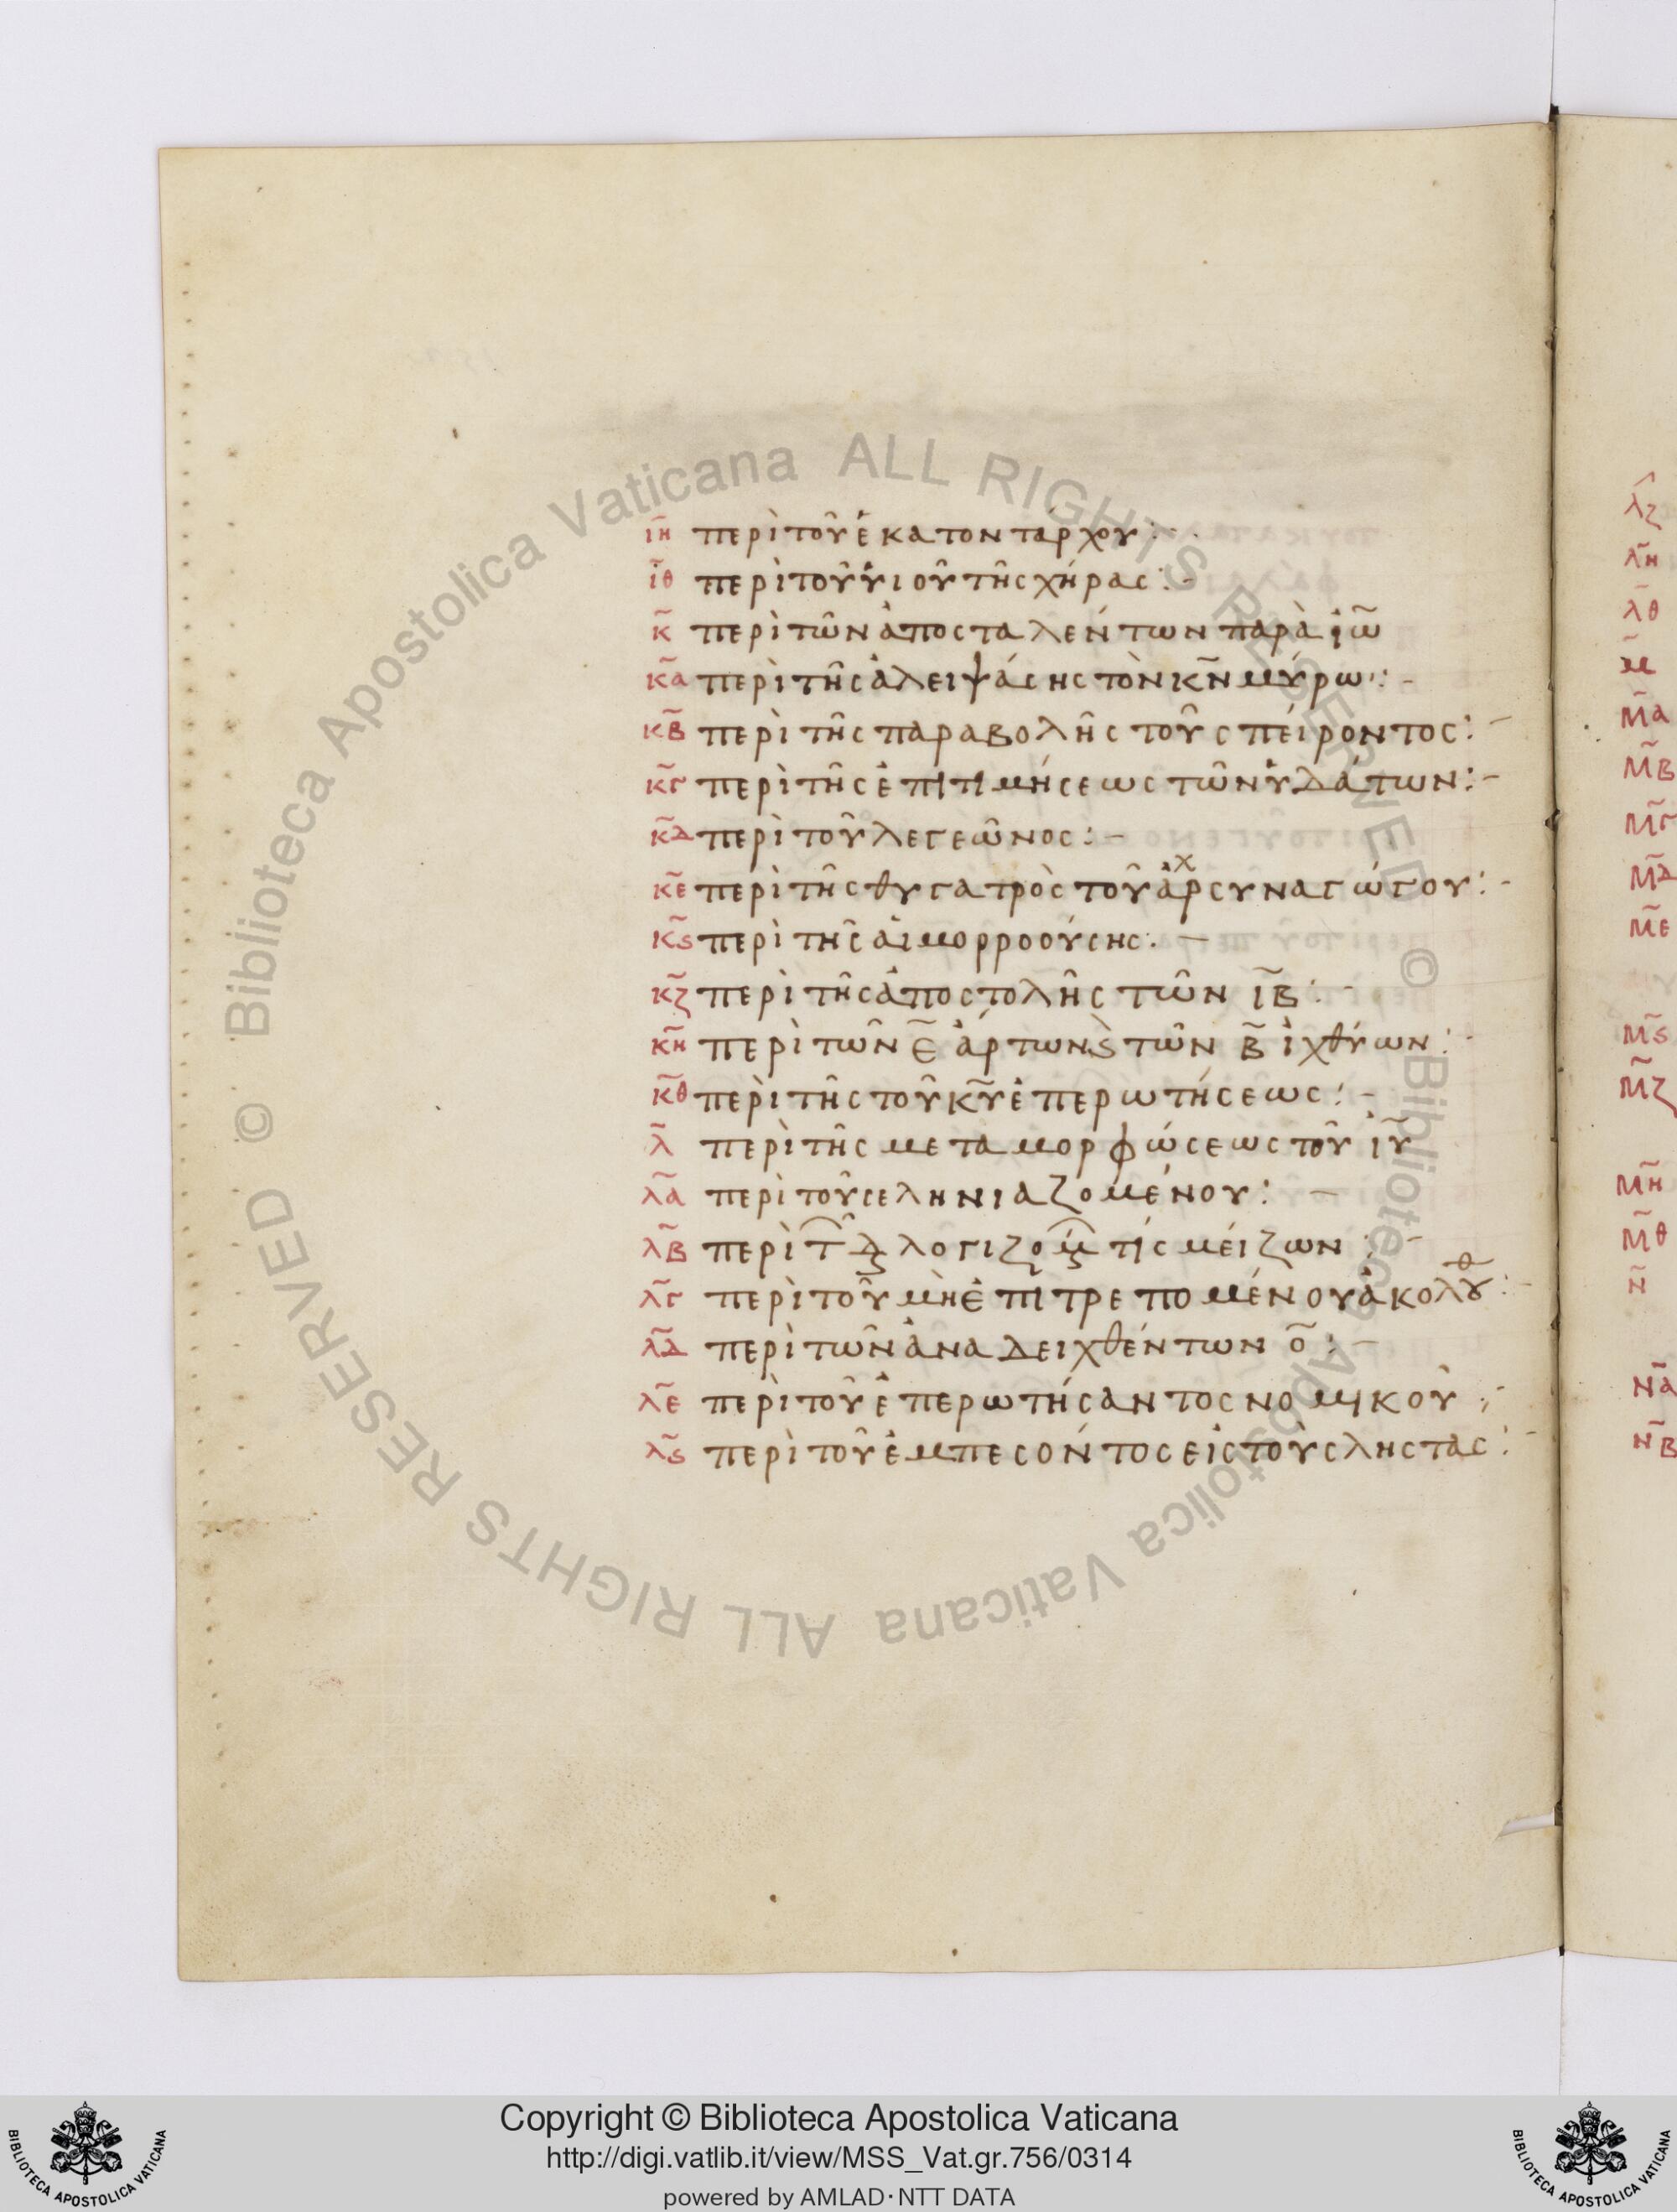 ιη περὶ τοῦ ἑκατοντάρχου :
ιθ περὶ τοῦ υἱοῦ τῆς χήρας : -
κ περὶ τῶν ἀποσταλέντων παρὰ ἰω
κα περὶ τῆς ἀλειψάσης τὸν κν μύρω : -
κβ περὶ τῆς παραβολῆς τοῦ σπείροντος : -
κγ περὶ τῆς ἐπιτιμήσεως τῶν ὑδάτων : -
κδ περὶ τοῦ λεγεῶνος : -
κε περὶ τῆς θυγατρὸς τοῦ ἀρχσυναγώγου : -
κς περὶ τῆς αἱμορροούσης : -
κζ περὶ τῆς ἀποστολῆς τῶν ιβ : -
κη περὶ τῶν ε ἄρτων ϗ τῶν β ἰχθύων : -
κθ περὶ τῆς τοῦ κυ ἐπερωτήσεως : -
λ περὶ τῆς μεταμορφώσεως τοῦ ιυ
λα περὶ τοῦ σεληνιαζομένου : -
λβ περὶ τ λογιζομ τίς μείζων : -
λγ περὶ τοῦ μὴ ἐπιτρεπομένου ἀκολουθ : -
λδ περὶ τῶν ἀναδειχθέντων ο : -
λε περὶ τοῦ ἐπερωτήσαντος νομικοῦ : -
λς περὶ τοῦ ἐμπεσόντος εἰς τοὺς λησταс : -
λζ
λη
λθ
μ
μα
μβ
μγ
μδ
με
μς
μζ
μη
μθ
ν
να
νβ
Biblioteca Apostolica Vaticana ALL RIGHTS RESERVED ©
Biblioteca Apostolica Vaticana ALL RIGHTS RESERVED ©
Copyright © Biblioteca Apostolica Vaticana
http://digi.vatlib.it/view/MSS_Vat.gr.756/0314
powered by AMLAD·NTT DATA
BIBLIOTECA APOSTOLICA VATICANA
BIBLIOTECA APOSTOLICA VATICANA